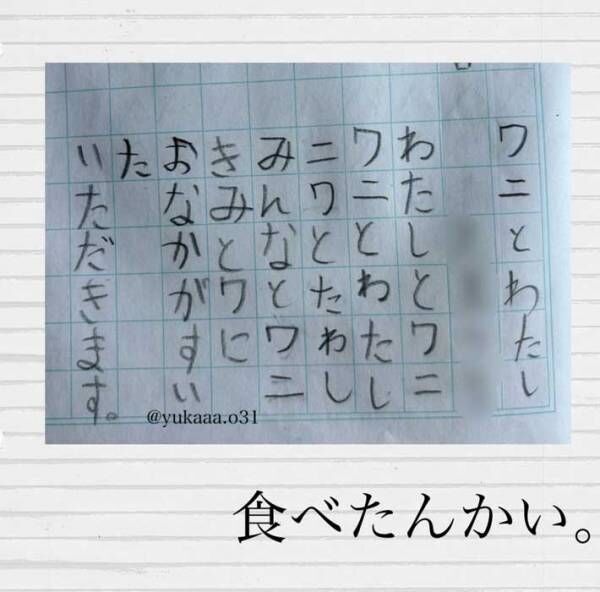 ワニとわたし
わたしとワニ
ワニとわたし
ニワとたわし
みんなとワニ
きみとワに
おなかがすい
た
いただきます。
@yukaaa.o31
食べたんかい。